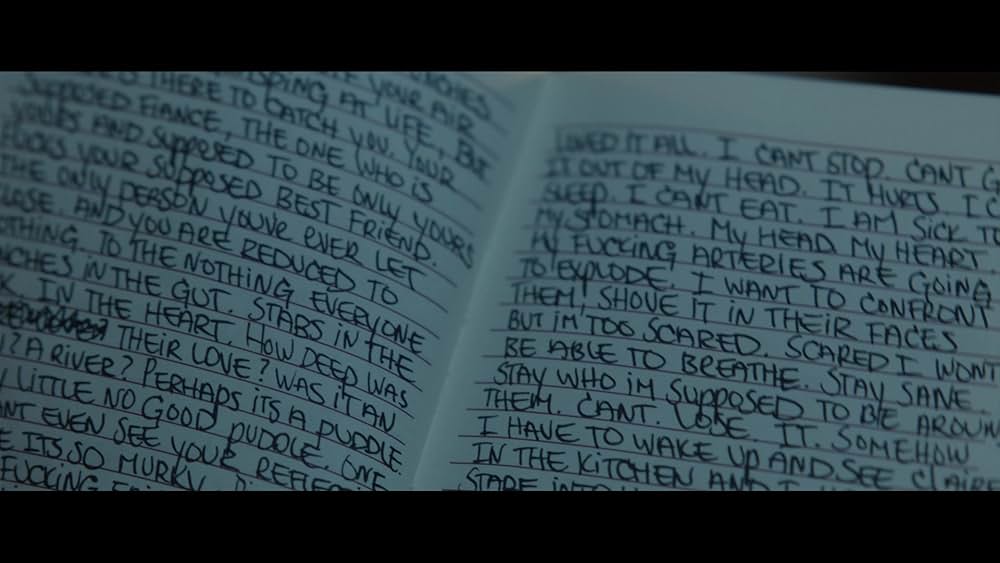 THERE TO CATCH YOU. YOUR AIR
SUPPOSED FIANCE, THE ONE WHO IS
YOURS AND SUPPOSED TO BE ONLY YOURS
FUCKS YOUR SUPPOSED BEST FRIEND.
THE ONLY PERSON YOUVE EVER LET
CLOSE. AND YOU ARE REDUCED TO
NOTHING. TO THE NOTHING EVERYONE
IN THE GUT. STABS IN THE
IN THE HEART. HOW DEEP WAS
THEIR LOVE? WAS IT AN
? A RIVER? PERHAPS ITS A PUDDLE.
LITTLE NO GOOD PUDDLE. ONE
EVEN SEE YOUR
ITS SO MURKY.
FUCKING
LOVED IT ALL. I CANT STOP. CANT G
IT OUT OF MY HEAD. IT HURTS. I C
SLEEP. I CANT EAT. I AM SICK TO
MY STOMACH. MY HEAD. MY HEART.
MY FUCKING ARTERIES ARE GOING
TO EXPLODE. I WANT TO CONFRONT
THEM! SHOVE IT IN THEIR FACES
BUT IM TOO SCARED. SCARED I WONT
BE ABLE TO BREATHE. STAY SANE.
STAY WHO IM SUPPOSED TO BE AROUN
THEM. CANT. LOSE. IT. SOMEHOW
I HAVE TO WAKE UP AND SEE CLAIRE
IN THE KITCHEN AND I
STARE INTO